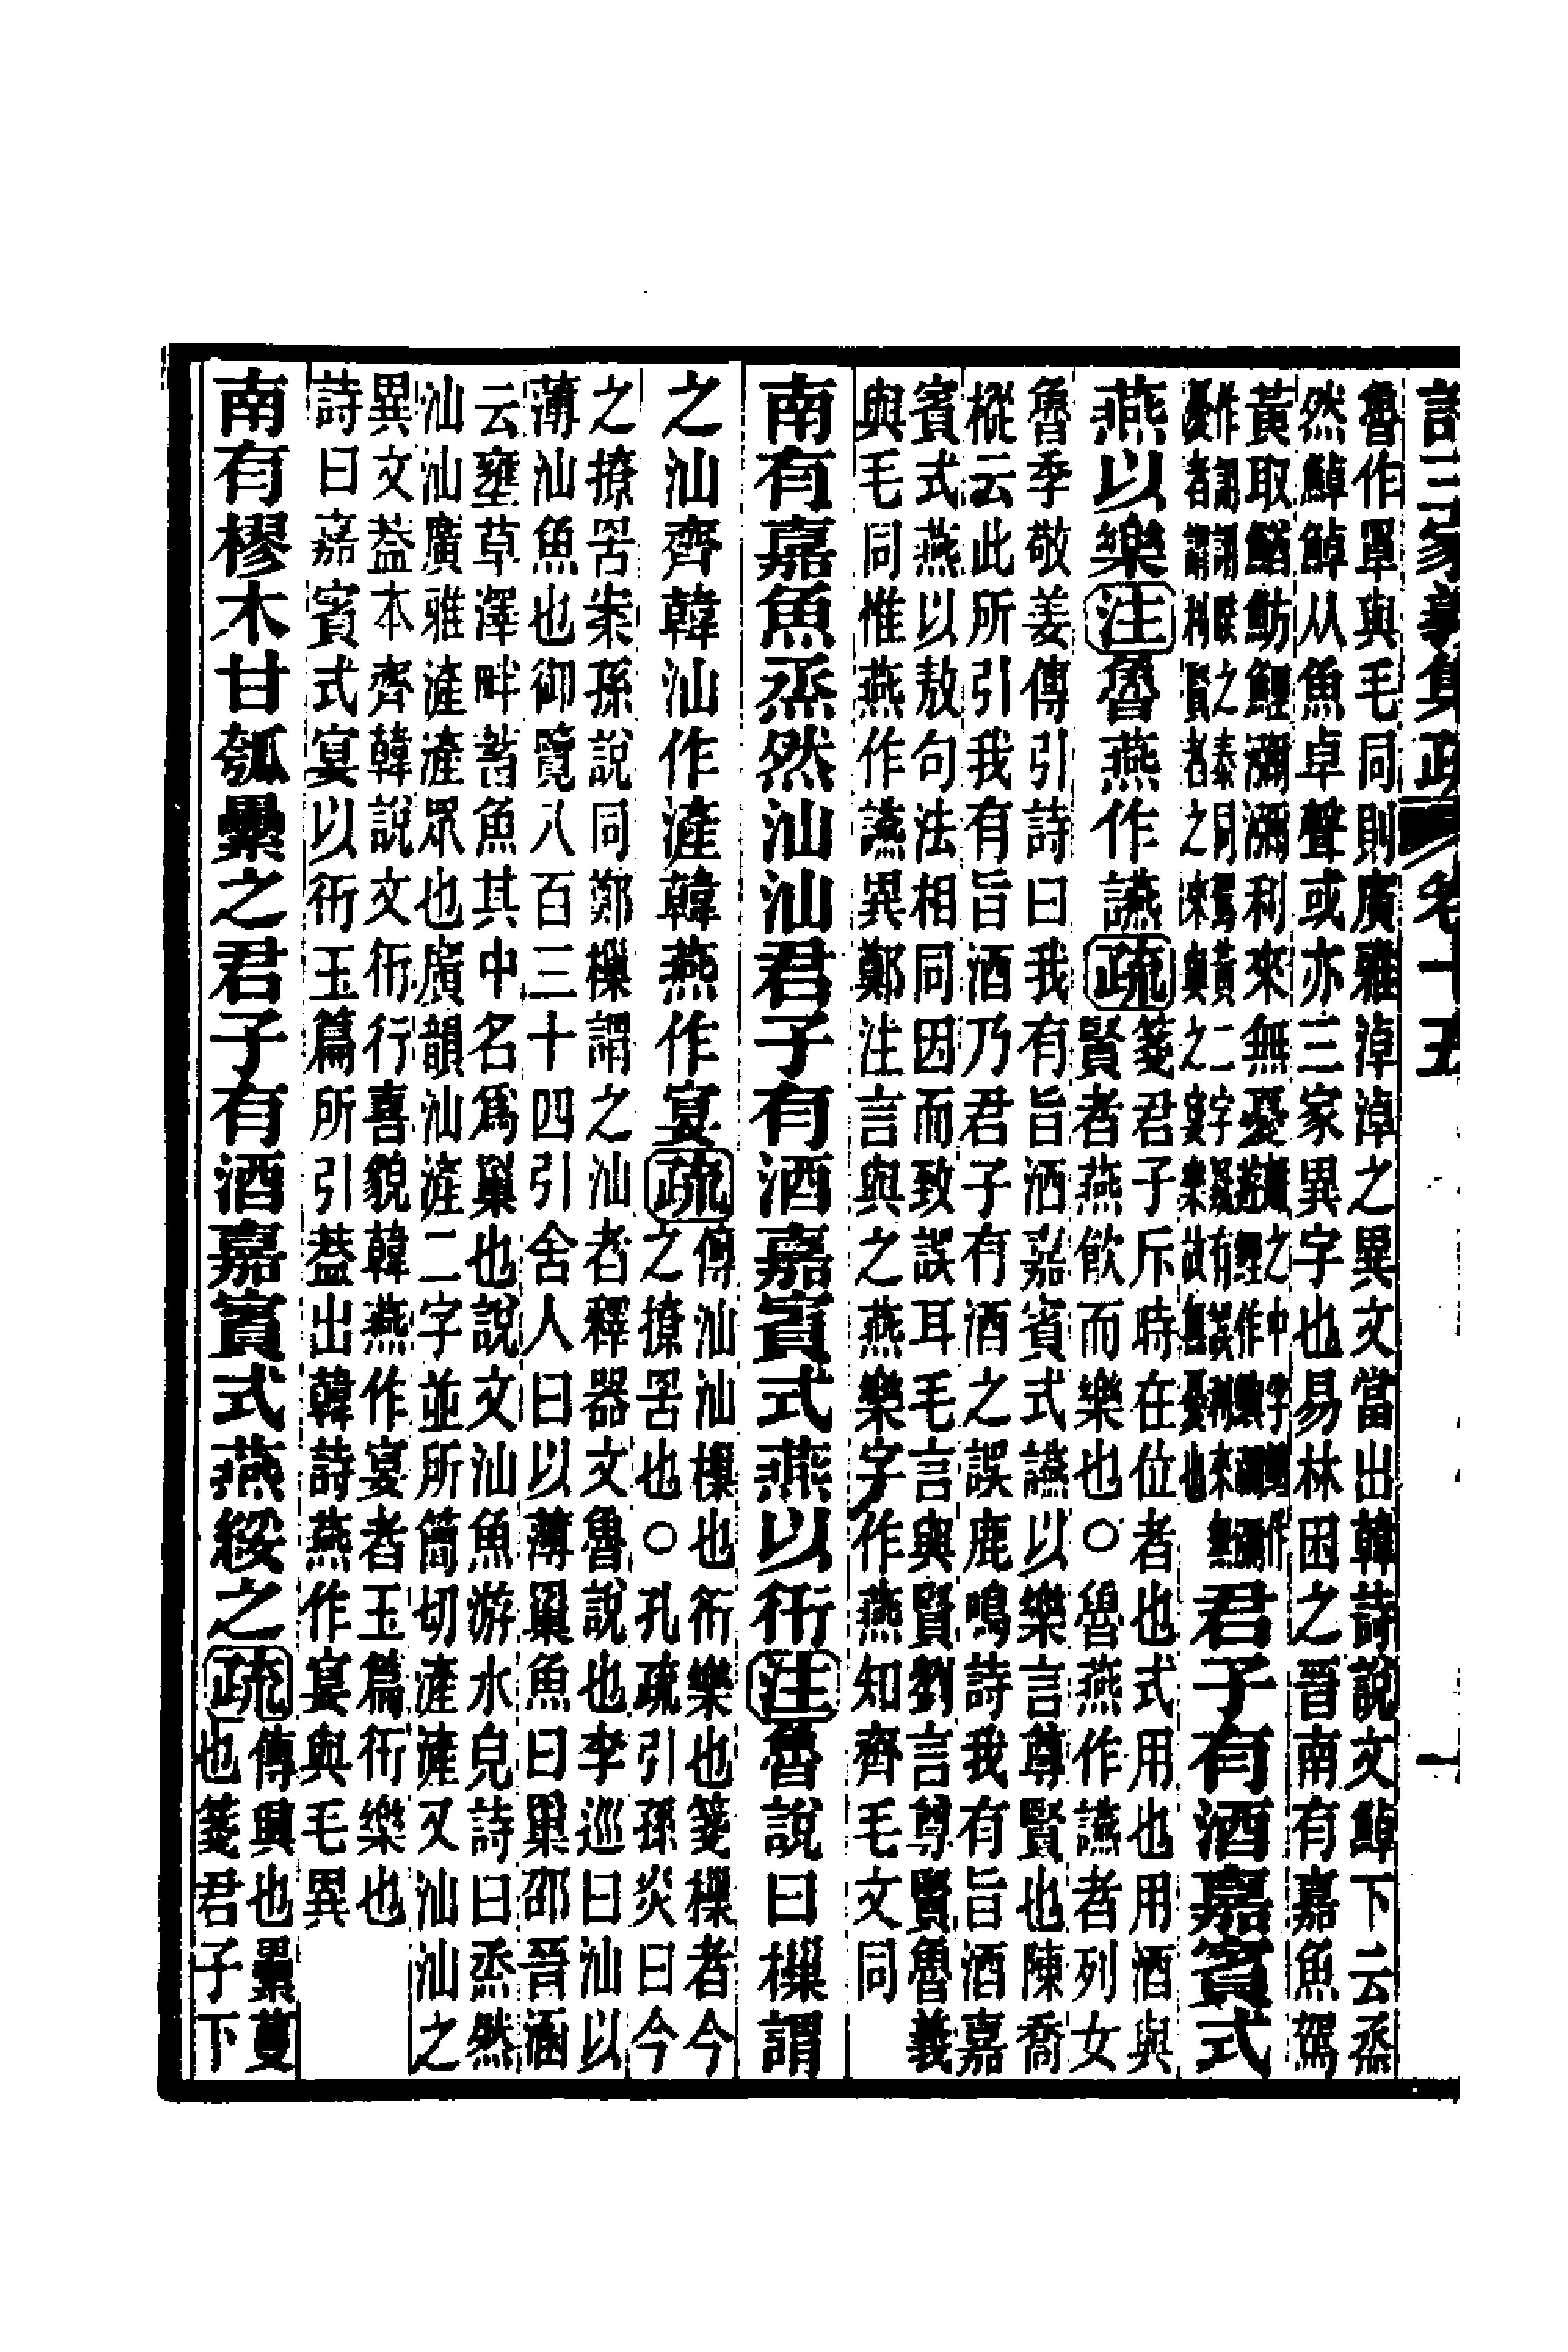 詩三家義集疏 卷十五 一
魯作罩與毛同則廣雅淖淖之異文當出韓詩說文䱜下云烝
然䱜䱜从魚卓聲或亦三家異字也易林困之晉南有嘉魚駕
黃取鰌魴鯉瀰瀰利來無憂
作詡詡睽之泰同駕黃二字疑有誤利來無
憂者謂利賢者之來與之宴樂故無憂也
君子有酒嘉賓式
燕以樂注魯燕作讌疏
箋君子斥時在位者也式用也用酒與
賢者燕飲而樂也○魯燕作讌者列女
魯季敬姜傳引詩曰我有旨酒嘉賓式讌以樂言尊賢也陳喬
樅云此所引我有旨酒乃君子有酒之誤鹿鳴詩我有旨酒嘉
賓式燕以敖句法相同因而致誤耳毛言與賢劉言尊賢魯義
與毛同惟燕作讌異鄭注言與之燕樂字作燕知齊毛文同
南有嘉魚烝然汕汕君子有酒嘉賓式燕以衎注魯說曰樔謂
之汕齊韓汕作滻韓燕作宴疏
傳汕汕樔也衎樂也箋樔者今
之撩罟也○孔疏引孫炎曰今
之撩罟朱孫說同鄭樔謂之汕者釋器文魯說也李巡曰汕以
薄汕魚也御覽八百三十四引舍人曰以薄罺魚曰罺邵晉涵
云壅草澤畔著魚其中名為罺也說文汕魚游水皃詩曰烝然
汕汕廣雅滻滻眾也廣韻汕滻二字並所簡切滻滻又汕汕之
異文葢本齊韓說文衎行喜貌韓燕作宴者玉篇衎樂也
詩曰嘉賓式宴以衎玉篇所引葢出韓詩燕作宴與毛異
南有樛木甘瓠纍之君子有酒嘉賓式燕綏之疏
傳興也纍蔓
也箋君子下